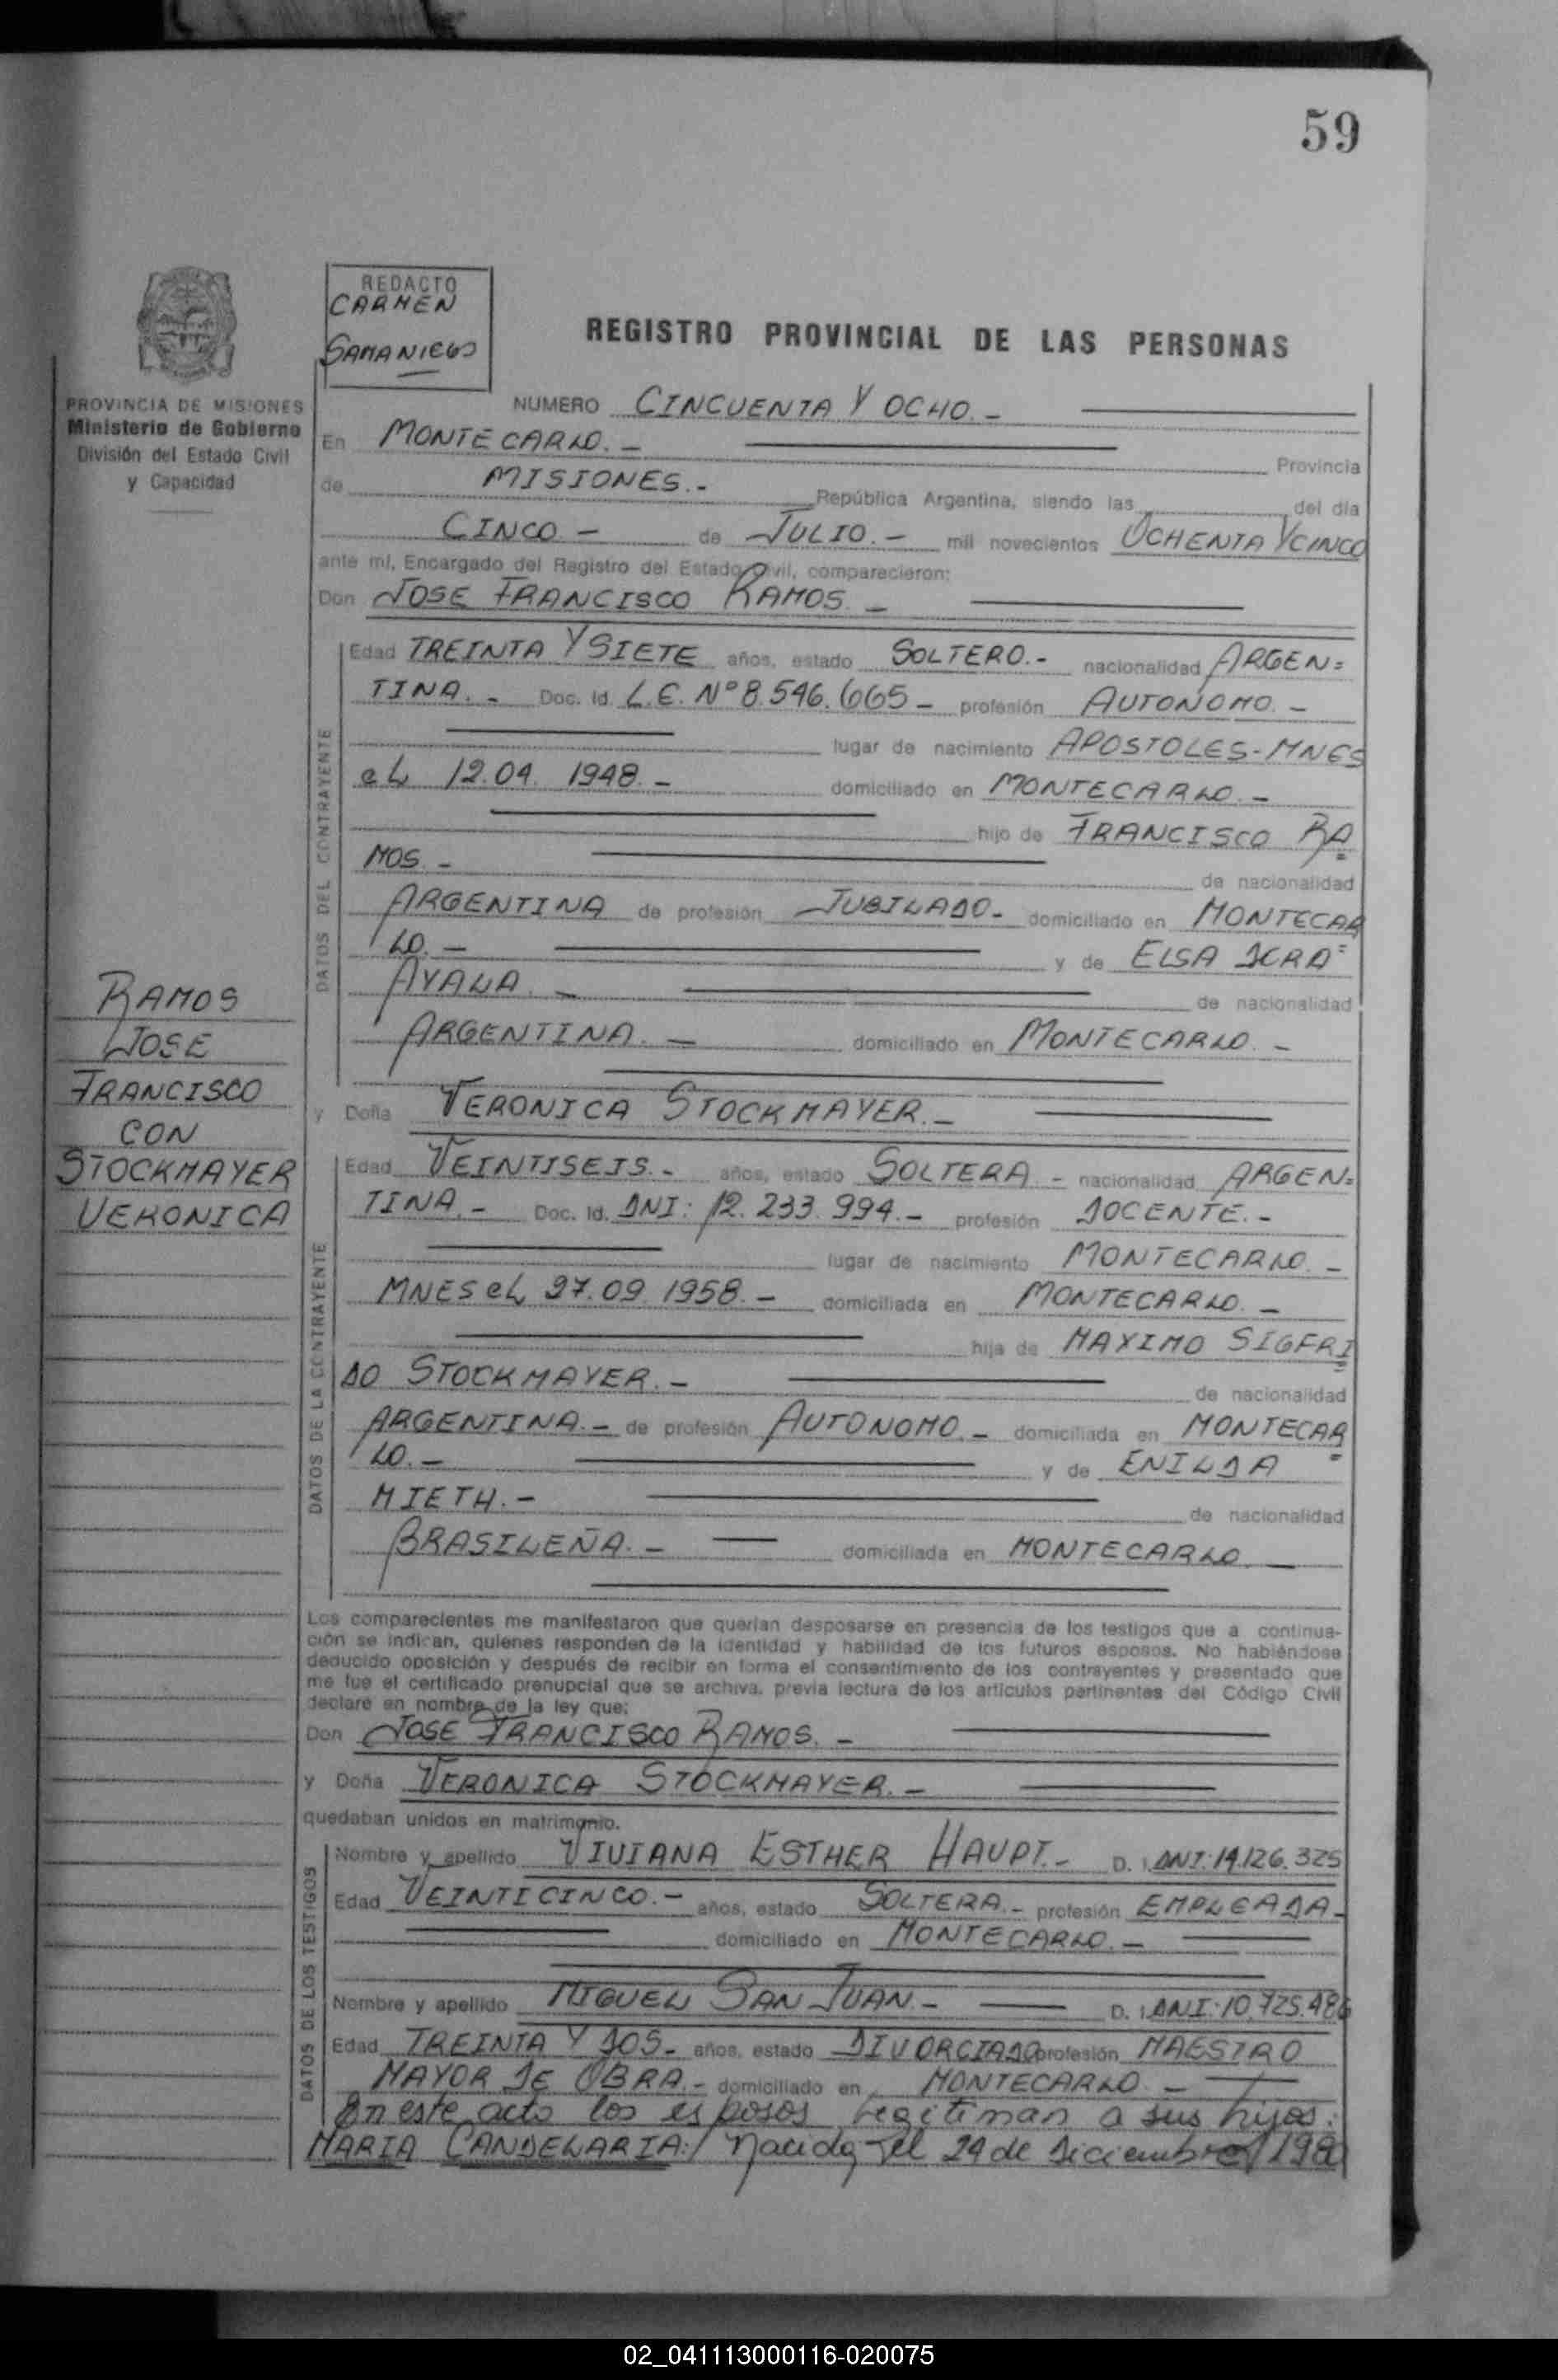 59
REDACTO
CARMEN
SAMANIEGO
REGISTRO PROVINCIAL DE LAS PERSONAS
PROVINCIA DE MISIONES
Ministerio de Gobierno
División del Estado Civil
y Capacidad
NUMERO CINCUENTA Y OCHO.-
En MONTECARLO.- Provincia
de MISIONES.- República Argentina, siendo las del día
CINCO - de JULIO.- mil novecientos OCHENTA Y CINCO
ante mí, Encargado del Registro del Estado Civil, comparecieron:
Don JOSE FRANCISCO RAMOS -
DATOS DEL CONTRAYENTE
Edad TREINTA Y SIETE años, estado SOLTERO.- nacionalidad ARGEN=
TINA.- Doc. Id. L.E. Nº 8.546.665- profesión AUTONOMO.-
lugar de nacimiento APOSTOLES-MNES
el 12.04.1948.- domiciliado en MONTECARLO.-
hijo de FRANCISCO RA=
MOS.- de nacionalidad
ARGENTINA de profesión JUBILADO- domiciliado en MONTECAR
LO.- y de ELSA
AYALA.- de nacionalidad
ARGENTINA.- domiciliado en MONTECARLO.-
y Doña VERONICA STOCKMAYER.-
RAMOS
JOSE
FRANCISCO
CON
STOCKMAYER
VERONICA
DATOS DE LA CONTRAYENTE
Edad VEINTISEIS.- años, estado SOLTERA - nacionalidad ARGEN=
TINA.- Doc. Id. DNI: 12.233.994.- profesión DOCENTE.-
lugar de nacimiento MONTECARLO.-
MNES el 27.09.1958.- domiciliada en MONTECARLO.-
hija de MAXIMO SIGFRI=
DO STOCKMAYER.- de nacionalidad
ARGENTINA.- de profesión AUTONOMO.- domiciliada en MONTECAR=
LO.- y de ENILDA
MIETH.- de nacionalidad
BRASILEÑA.- domiciliada en MONTECARLO
Los comparecientes me manifestaron que querían desposarse en presencia de los testigos que a continua-
ción se indican, quienes responden de la identidad y habilidad de los futuros esposos. No habiéndose
deducido oposición y después de recibir en forma el consentimiento de los contrayentes y presentado que
me fue el certificado prenupcial que se archiva, previa lectura de los artículos pertinentes del Código Civil
declare en nombre de la ley que:
Don JOSE FRANCISCO RAMOS.-
y Doña VERONICA STOCKMAYER.-
quedaban unidos en matrimonio.
DATOS DE LOS TESTIGOS
Nombre y apellido VIVIANA ESTHER HAUPT.- D. I. DNI: 14.126.325
Edad VEINTICINCO.- años, estado SOLTERA.- profesión EMPLEADA-
domiciliado en MONTECARLO.-
Nombre y apellido MIGUEL SAN JUAN.- D. I. DNI: 10.725.486
Edad TREINTA Y DOS- años, estado DIVORCIADO profesión MAESTRO
MAYOR DE OBRA.- domiciliado en MONTECARLO -
En este acto los esposos legitiman a sus hijos:
MARIA CANDELARIA:/ Nacida el 24 de Diciembre/1980
02_041113000116-020075